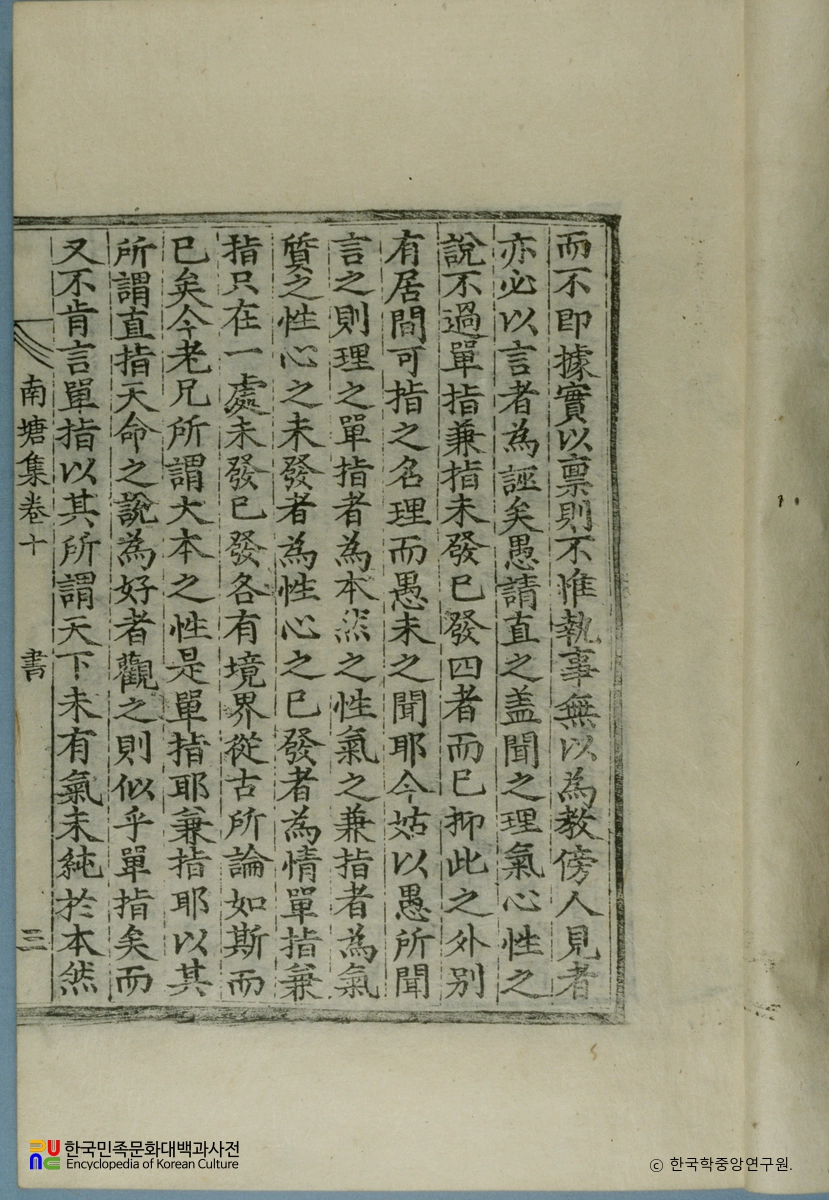 而不即據實以稟則不惟執事無以為教傍人見者
亦必以言者為誣矣愚請直之盖聞之理氣心性之
說不過單指兼指未發已發四者而已抑此之外別
有居間可指之名理而愚未之聞耶今姑以愚所聞
言之則理之單指者為本然之性氣之兼指者為氣
質之性心之未發者為性心之已發者為情單指兼
指只在一處未發已發各有境界從古所論如斯而
已矣今老兄所謂大本之性是單指耶兼指耶以其
所謂直指天命之說為好者觀之則似乎單指矣而
又不肯言單指以其所謂天下未有氣未純於本然
南塘集卷十 書 三
한국민족문화대백과사전
Encyclopedia of Korean Culture
© 한국학중앙연구원.